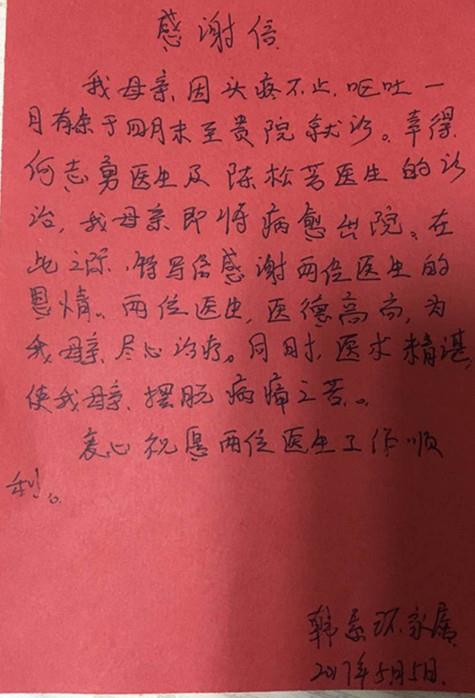 感谢信
我母亲,因头疼不止,呕吐一
月有余于四月末至贵院就诊。幸得
何志勇医生及陈松芳医生的诊
治,我母亲即将病愈出院。在
此之际,特写信感谢两位医生的
恩情。两位医生,医德高尚,为
我母亲尽心诊疗。同时,医术精湛,
使我母亲,摆脱病痛之苦。
衷心祝愿两位医生工作顺
利。
韩 环家属
2017年5月5日.